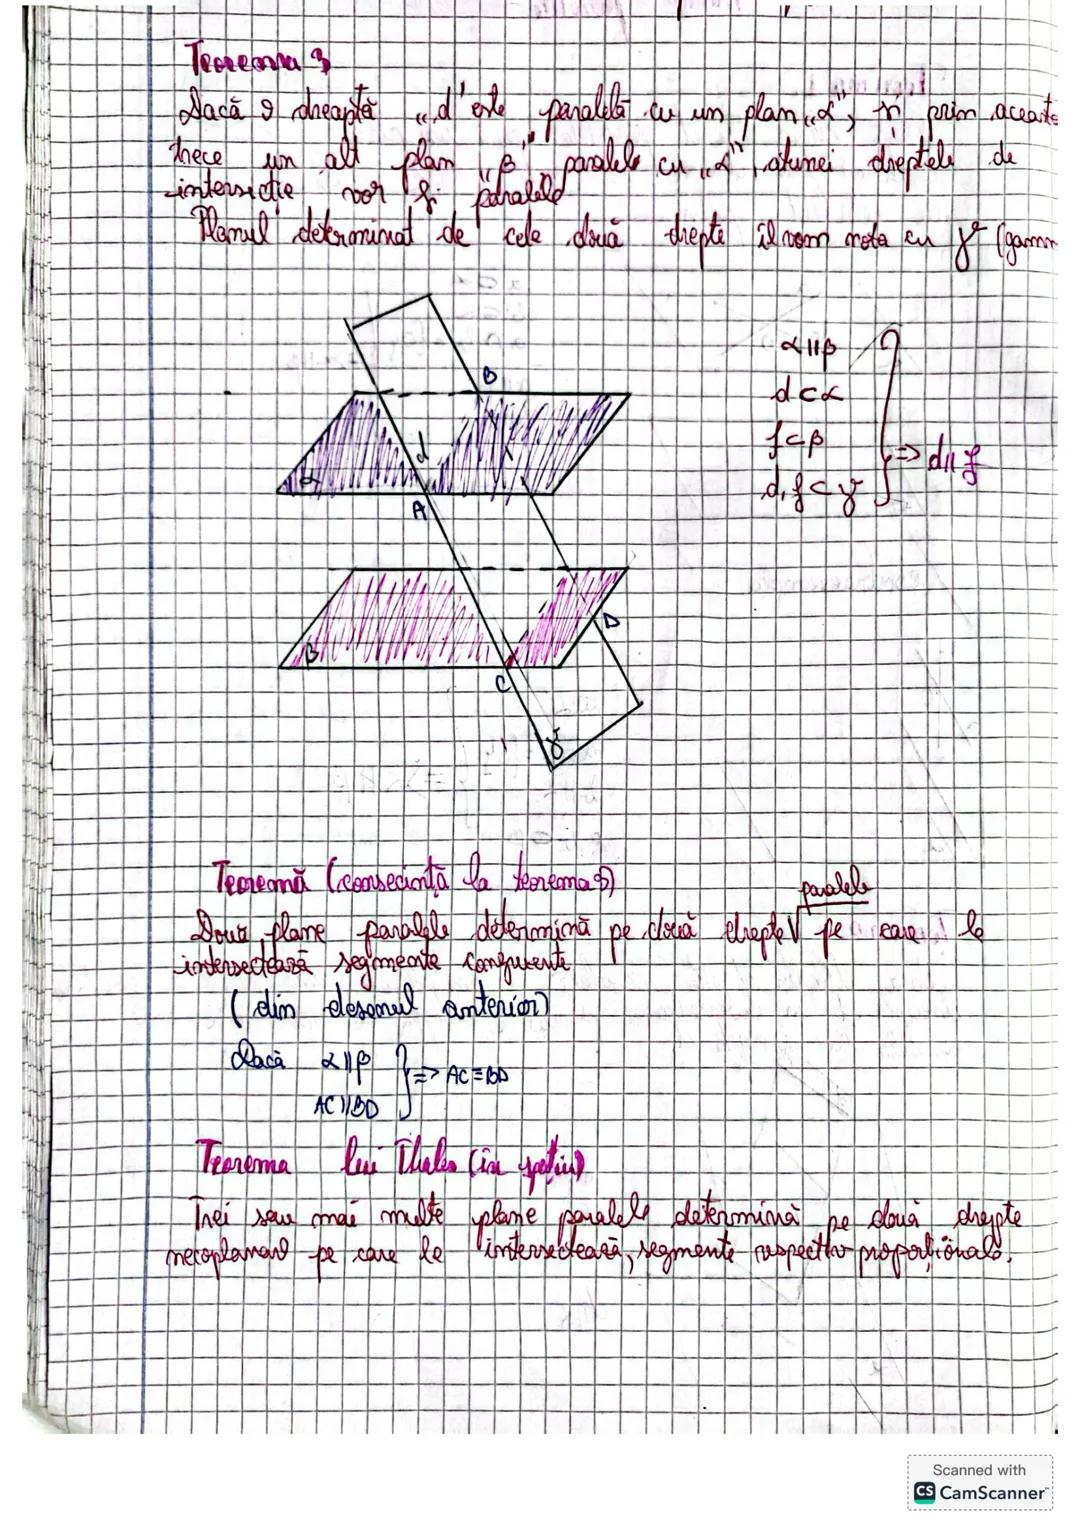 Teorema 3
Dacă o dreaptă „d" este paralelă cu un plan „α", și prin aceasta
trece un alt plan „β" paralele cu „α", atunci dreptele de
intersecție vor fi paralele
Planul determinat de cele două drepte îl vom nota cu γ (gamm
B
d
α
A
β
D
C
γ
α||β
d⊂α
f⊂β
d, f⊂γ
=> d||f
Teoremă (consecință la teorema 3)
paralele
Două plane paralele determină pe două drepte √ pe care le
intersectează segmente congruente
(din desenul anterior)
Dacă α||β
AC||BD
=> AC≡BD
Teorema lui Thales (în spațiu)
Trei sau mai multe plane paralele determină pe două drepte
pe care le intersectează, segmente respectiv proporționale.
Scanned with
CS CamScanner